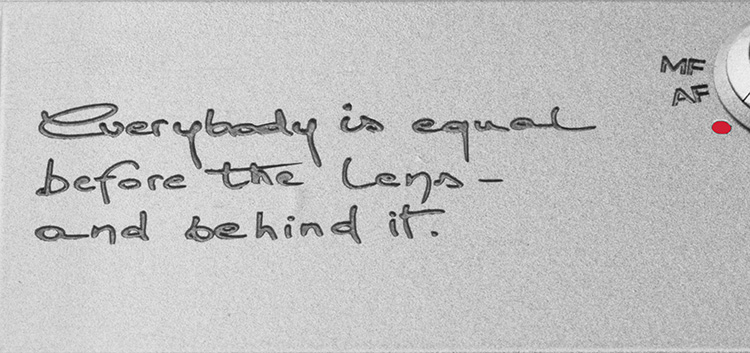 Everybody is equal
before the Lens –
and behind it.
MF
AF